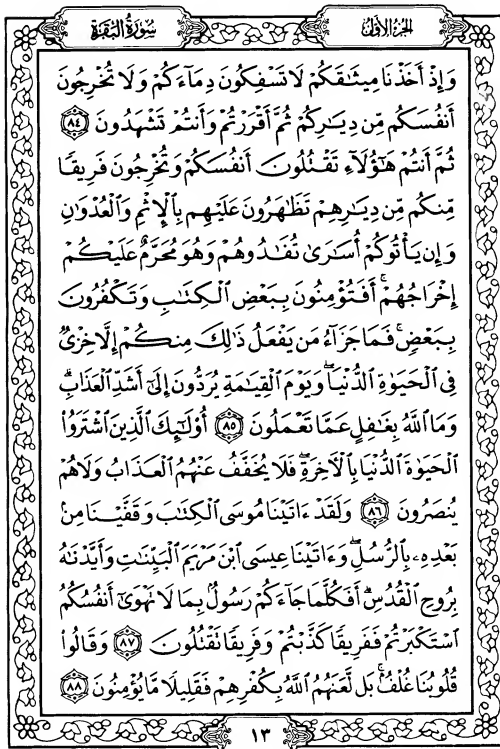 سُورَةُ البَقَرَةِ
الجُزءُ الأوَّلُ
وَإِذْ أَخَذْنَا مِيثَٰقَكُمْ لَا تَسْفِكُونَ دِمَآءَكُمْ وَلَا تُخْرِجُونَ
أَنفُسَكُم مِّن دِيَٰرِكُمْ ثُمَّ أَقْرَرْتُمْ وَأَنتُمْ تَشْهَدُونَ ٨٤
ثُمَّ أَنتُمْ هَٰٓؤُلَآءِ تَقْتُلُونَ أَنفُسَكُمْ وَتُخْرِجُونَ فَرِيقًا
مِّنكُم مِّن دِيَٰرِهِمْ تَظَٰهَرُونَ عَلَيْهِم بِٱلْإِثْمِ وَٱلْعُدْوَٰنِ
وَإِن يَأْتُوكُمْ أُسَٰرَىٰ تُفَٰدُوهُمْ وَهُوَ مُحَرَّمٌ عَلَيْكُمْ
إِخْرَاجُهُمْ ۚ أَفَتُؤْمِنُونَ بِبَعْضِ ٱلْكِتَٰبِ وَتَكْفُرُونَ
بِبَعْضٍ ۚ فَمَا جَزَآءُ مَن يَفْعَلُ ذَٰلِكَ مِنكُمْ إِلَّا خِزْىٌ
فِى ٱلْحَيَوٰةِ ٱلدُّنْيَا ۖ وَيَوْمَ ٱلْقِيَٰمَةِ يُرَدُّونَ إِلَىٰٓ أَشَدِّ ٱلْعَذَابِ ۗ
وَمَا ٱللَّهُ بِغَٰفِلٍ عَمَّا تَعْمَلُونَ ٨٥ أُو۟لَٰٓئِكَ ٱلَّذِينَ ٱشْتَرَوُا۟
ٱلْحَيَوٰةَ ٱلدُّنْيَا بِٱلْـَٔاخِرَةِ ۖ فَلَا يُخَفَّفُ عَنْهُمُ ٱلْعَذَابُ وَلَا هُمْ
يُنصَرُونَ ٨٦ وَلَقَدْ ءَاتَيْنَا مُوسَى ٱلْكِتَٰبَ وَقَفَّيْنَا مِنۢ
بَعْدِهِۦ بِٱلرُّسُلِ ۖ وَءَاتَيْنَا عِيسَى ٱبْنَ مَرْيَمَ ٱلْبَيِّنَٰتِ وَأَيَّدْنَٰهُ
بِرُوحِ ٱلْقُدُسِ ۗ أَفَكُلَّمَا جَآءَكُمْ رَسُولٌۢ بِمَا لَا تَهْوَىٰٓ أَنفُسُكُمُ
ٱسْتَكْبَرْتُمْ فَفَرِيقًا كَذَّبْتُمْ وَفَرِيقًا تَقْتُلُونَ ٨٧ وَقَالُوا۟
قُلُوبُنَا غُلْفٌۢ ۚ بَل لَّعَنَهُمُ ٱللَّهُ بِكُفْرِهِمْ فَقَلِيلًا مَّا يُؤْمِنُونَ ٨٨
١٣